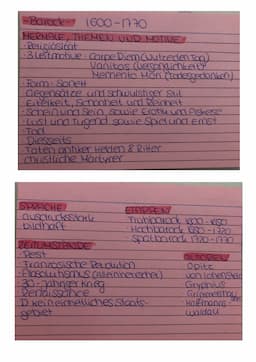 -Barock- 1600-1770
MERKMALE, THEMEN UND MOTIVE
-Religiosität
-3 Leitmotive - Carpe Diem (Nutze den Tag)
Vanitas (Vergänglichkeit)
Memento Mori (Todesgedanken)
-Form - Sonett
-Gegensätze und schwulstiger Stil
-Eitelkeit, Schönheit und Reinheit
-Schein und Sein, sowie Erotik und Askese
-Lust und Tugend sowie Spiel und Ernst
-Tod
-Diesseits
-Taten antiker Helden & Ritter
-christliche Märtyrer
SPRACHE
EPOCHEN
-ausdrucksstark
-bildhaft
Frühbarock 1600-1650
Hochbarock 1650-1720
Spätbarock 1720-1770
ZEITUMSTÄNDE
-Pest
-Französische Revolution
-Absolutismus (Alleinherrscher)
-30-Jähriger Krieg
-Renaissance
-D kein einheitliches Staats-
gebiet
AUTOREN
Opitz
Gryphius
Grimmelshausen
Hoffmanns-
waldau